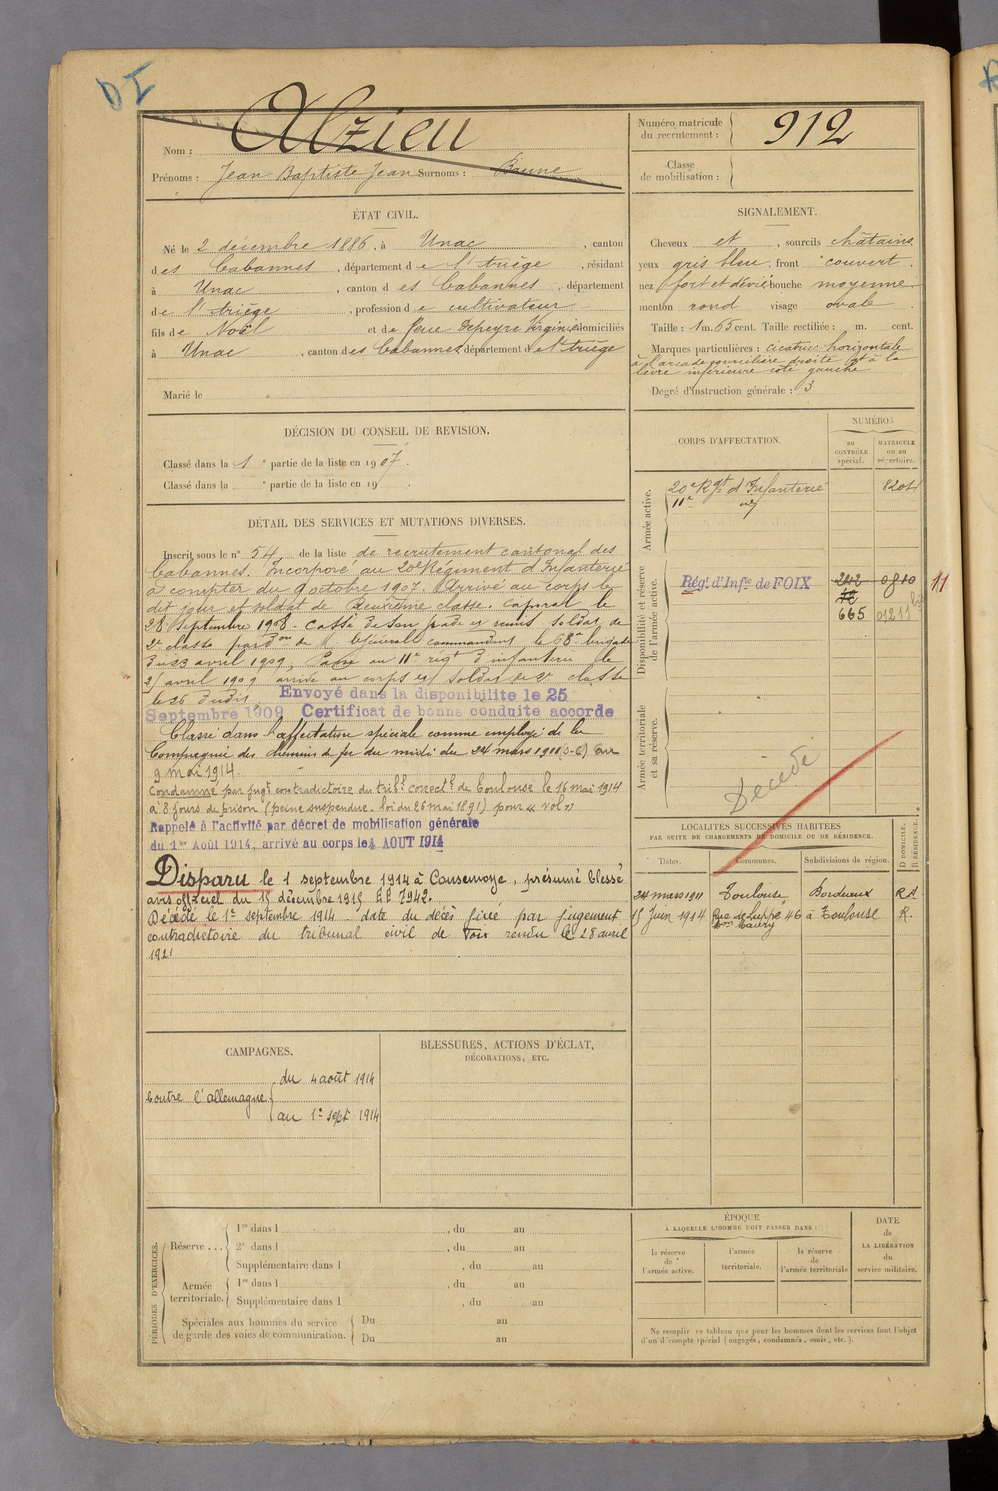 DI
Nom : Alzieu
Prénoms : Jean Baptiste Jean Surnoms : Brune
Numéro matricule du recrutement : 912
Classe de mobilisation :
ÉTAT CIVIL.
Né le 2 décembre 1886, à Unac, canton
des Cabannes, département de l'Ariège, résidant
à Unac, canton des Cabannes, département
de l'Ariège, profession de cultivateur
fils de Noël et de feue Depeyre Virginie domiciliés
à Unac, canton des Cabannes, département de l'Ariège
Marié le
SIGNALEMENT.
Cheveux et, sourcils châtains
yeux gris bleu, front couvert
nez fort et dévié bouche moyenne
menton rond visage ovale
Taille : 1 m. 65 cent. Taille rectifiée : m. cent.
Marques particulières : cicatrice horizontale
à l'arcade sourcilière droite et à la
lèvre inférieure côté gauche
Degré d'instruction générale : 3
DÉCISION DU CONSEIL DE REVISION.
Classé dans la 1e partie de la liste en 1907.
Classé dans la e partie de la liste en 19 .
DÉTAIL DES SERVICES ET MUTATIONS DIVERSES.
Inscrit sous le n° 54 de la liste de recrutement cantonal des
Cabannes. Incorporé au 20e Régiment d'Infanterie
à compter du 9 octobre 1907. Arrivé au corps le
dit jour et soldat de deuxième classe. Caporal le
28 Septembre 1908. Cassé de son grade et remis soldat de
2e classe par don de M. le Général commandant la 68e brigade
du 23 avril 1909, Passé au 11e régt d'infanterie le
25 avril 1909 arrivé au corps et soldat de 2e classe
le 26 dudit. Envoyé dans la disponibilité le 25
Septembre 1909 Certificat de bonne conduite accordé
Classé dans l'affectation spéciale comme employé de la
Compagnie des chemins de fer du midi du 24 mars 1911 au
9 mai 1914.
Condamné par jugt contradictoire du tribl correctl de Toulouse le 16 mai 1914
à 8 jours de prison (peine suspendue - loi du 26 mai 1891) pour « vol »
Rappelé à l'activité par décret de mobilisation générale
du 1er Août 1914, arrivé au corps le 4 AOUT 1914
Disparu le 1 septembre 1914 à Consenvoye, présumé blessé
avis officiel du 15 décembre 1915 EE 7942.
Décédé le 1er septembre 1914 - date du décès fixée par jugement
contradictoire du tribunal civil de Foix rendu le 28 avril
1921
CORPS D'AFFECTATION.
NUMÉROS
au CONTRÔLE spécial.
MATRICULE ou au répertoire.
Armée active.
20e Rgt d'Infanterie 8204
11e
Disponibilité et réserve de l'armée active.
Régt d'Infie de FOIX 0810 11
665 01211 bis
Armée territoriale et sa réserve.
Décédé
LOCALITÉS SUCCESSIVES HABITÉES
PAR SUITE DE CHANGEMENTS DE DOMICILE OU DE RÉSIDENCE.
Dates. Communes. Subdivisions de région. D DOMICILE. R RÉSIDENCE.
24 mars 1911 Toulouse Bordeaux RA
15 Juin 1914 Rue de Luppé 46 à Toulouse R.
CAMPAGNES.
Contre l'allemagne
du 4 août 1914
au 1er sept 1914
BLESSURES, ACTIONS D'ÉCLAT,
DÉCORATIONS, ETC.
PÉRIODES D'EXERCICES.
Réserve ... 1re dans l , du au
2e dans l , du au
Supplémentaire dans l , du au
Armée territoriale. 1re dans l , du au
Supplémentaire dans l , du au
Spéciales aux hommes du service Du au
de garde des voies de communication. Du au
ÉPOQUE
À LAQUELLE L'HOMME DOIT PASSER DANS :
la réserve de l'armée active.
l'armée territoriale.
la réserve de l'armée territoriale
DATE de LA LIBÉRATION du service militaire.
Ne remplir ce tableau que pour les hommes dont les services font l'objet
d'un décompte spécial (engagés, condamnés, omis, etc.).